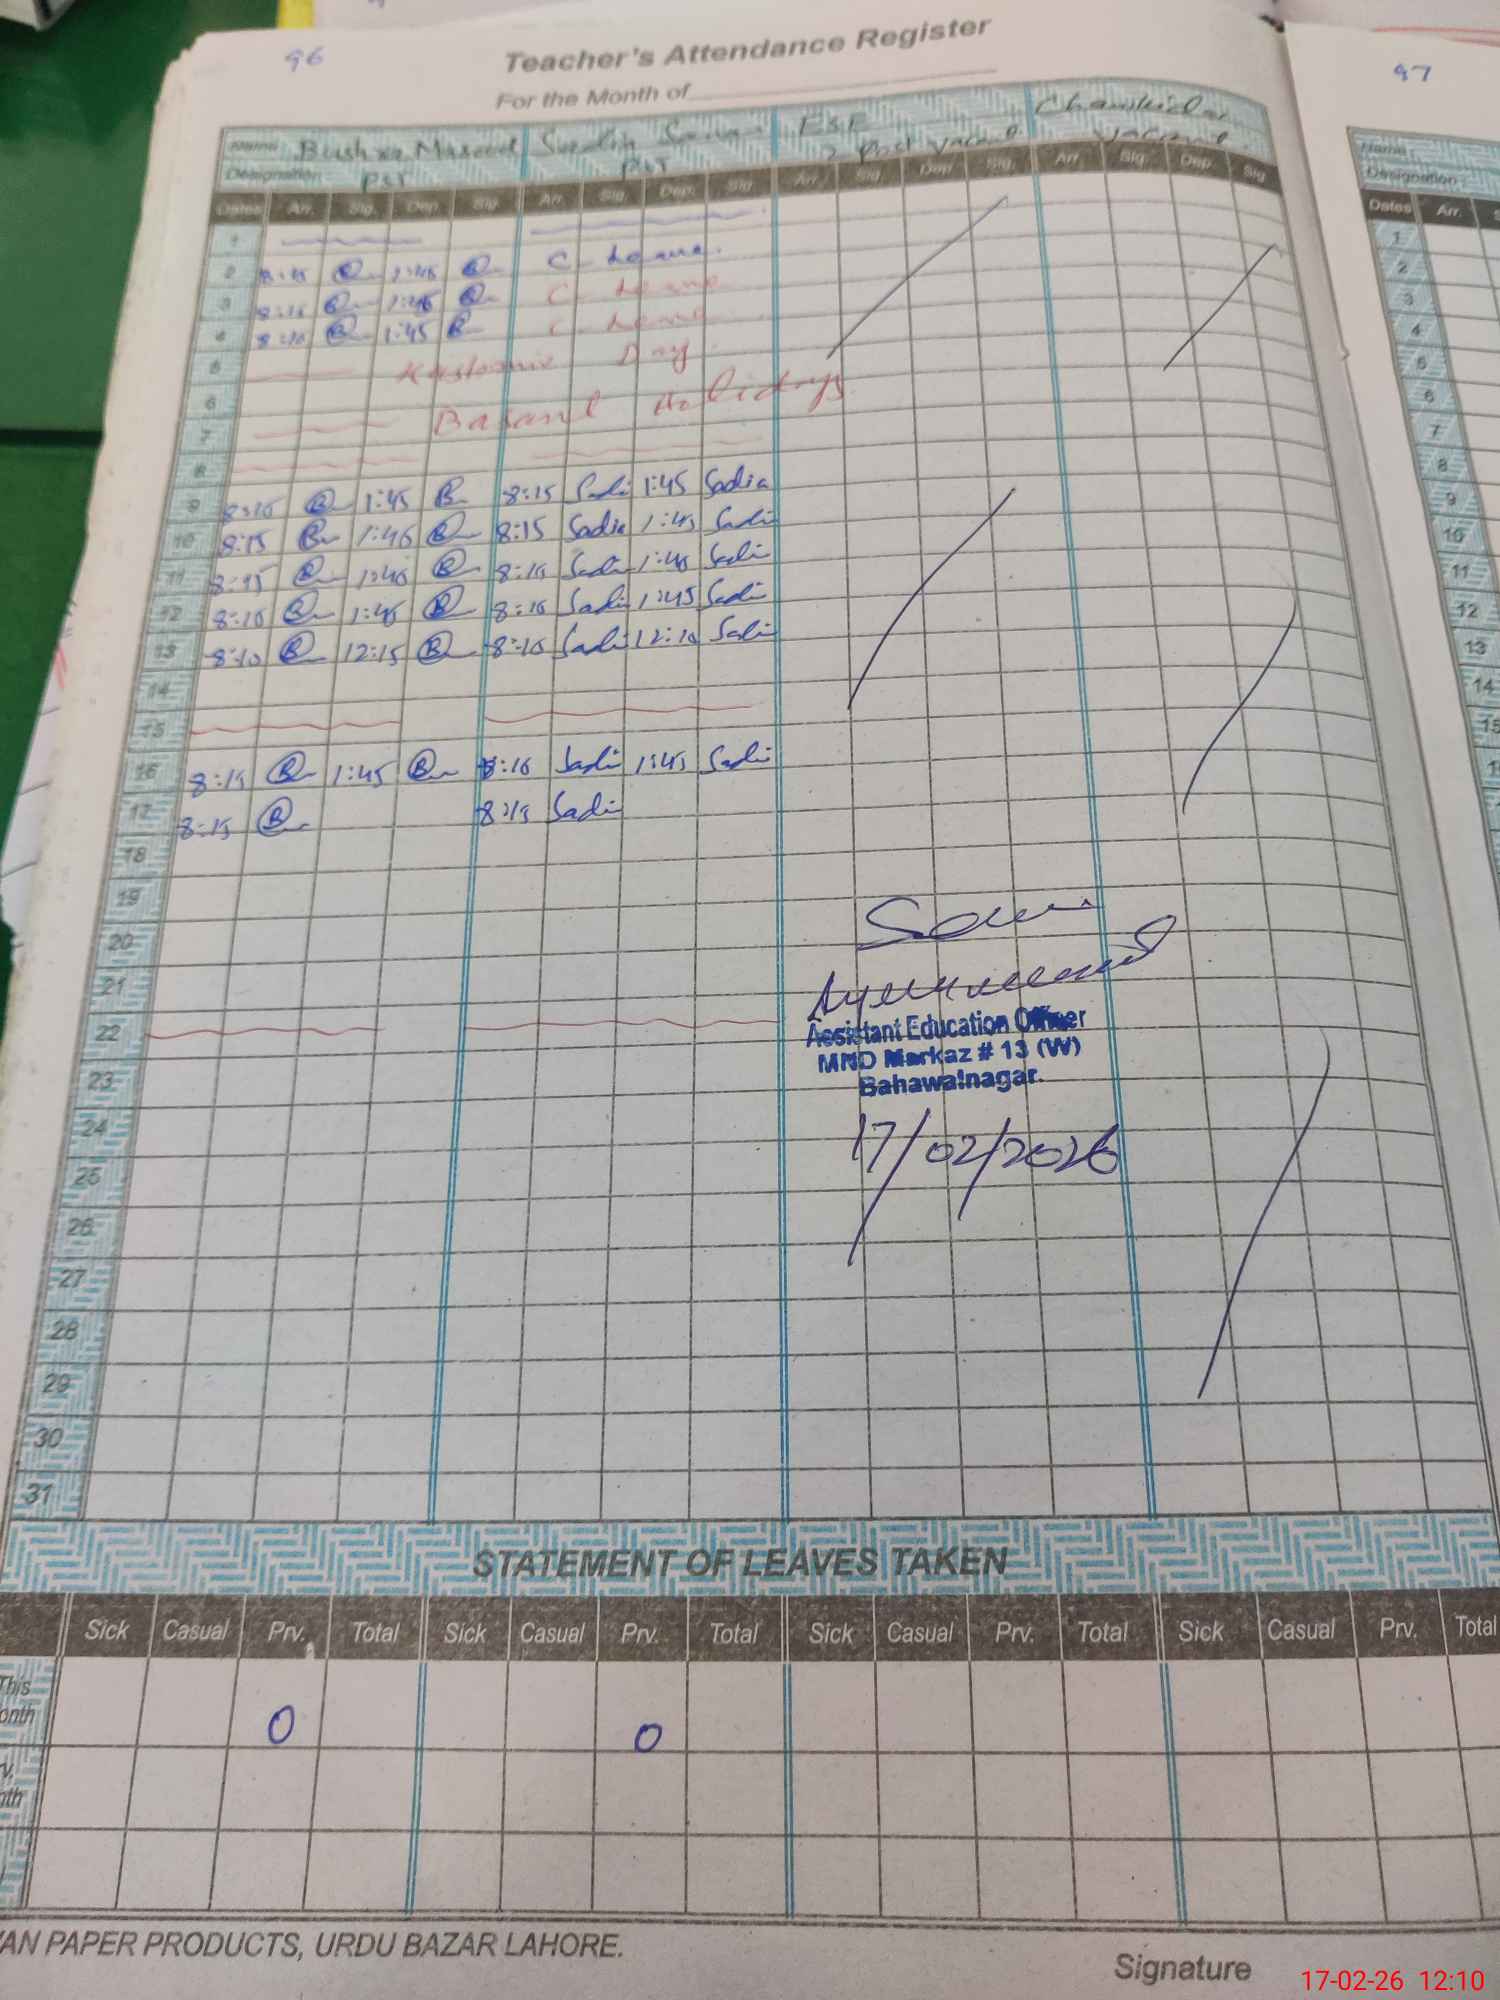 96
Teacher's Attendance Register
For the Month of
97
Name Bushra Masood ESE Chowkidar
Designation PST PST Post Vacant Vacant
Dates Arr. Sig. Dep. Sig. Arr. Sig. Dep. Sig. Arr. Sig. Dep. Sig. Arr. Sig. Dep. Sig.
1
2 8:15 B 1:45 B C- Leave.
3 8:15 B 1:45 B C- Leave
4 8:10 B 1:45 B C- Leave
5 Kashmir Day.
6
7 Basant Holidays.
8
9 8:10 B 1:45 B 8:15 Sadi 1:45 Sadia
10 8:15 B 1:45 B 8:15 Sadia 1:45 Sadi
11 8:15 B 1:45 B 8:10 Sadi 1:45 Sadi
12 8:10 B 1:45 B 8:10 Sadi 1:45 Sadi
13 8:10 B 12:15 B 8:10 Sadi 12:10 Sadi
14
15
16 8:15 B 1:45 B 8:10 Sadi 1:45 Sadi
17 8:15 B 8:15 Sadi
18
19
20
21
22
Assistant Education Officer
MND Markaz # 13 (W)
Bahawalnagar.
23
24
17/02/2026
25
26
27
28
29
30
31
Name
Designation
Dates Arr.
1
2
3
4
5
6
7
8
9
10
11
12
13
14
15
STATEMENT OF LEAVES TAKEN
Sick Casual Prv. Total Sick Casual Prv. Total Sick Casual Prv. Total Sick Casual Prv. Total
This
onth 0 0
v.
nth
AN PAPER PRODUCTS, URDU BAZAR LAHORE.
Signature
17-02-26 12:10